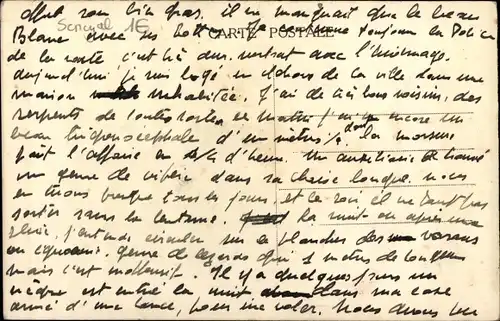 effet son bien gras, il ne manquait que le beau
Senegal 1E
Blanc avec ses CARTE POSTALE toujours la Police
de la route c'est très du contrat avec l'
aujourd'hui je suis logé en dehors de la ville dans une
maison inhabitée. J'ai de très bons voisins, des
serpents de toutes sortes ce matin j'en ai encore un
beau trigonocéphale d'un mètre ½ dont la morsure
fait l'affaire en ¼ d'heure. Un auxiliaire a trouvé
un genre de vipère dans sa chaise longue. nous
en tuons presque tous les jours et le soir, il ne faut pas
sortir sans la lanterne. la nuit ou après une
pluie, j'entends circuler sur les planches des varans
ou iguanes. genre de lézards qui 1 mètre de longueur
mais c'est inoffensif. Il y a quelques jours un
nègre est entré la nuit dans ma case
armé d'une lance, pour me voler. Nous avons un